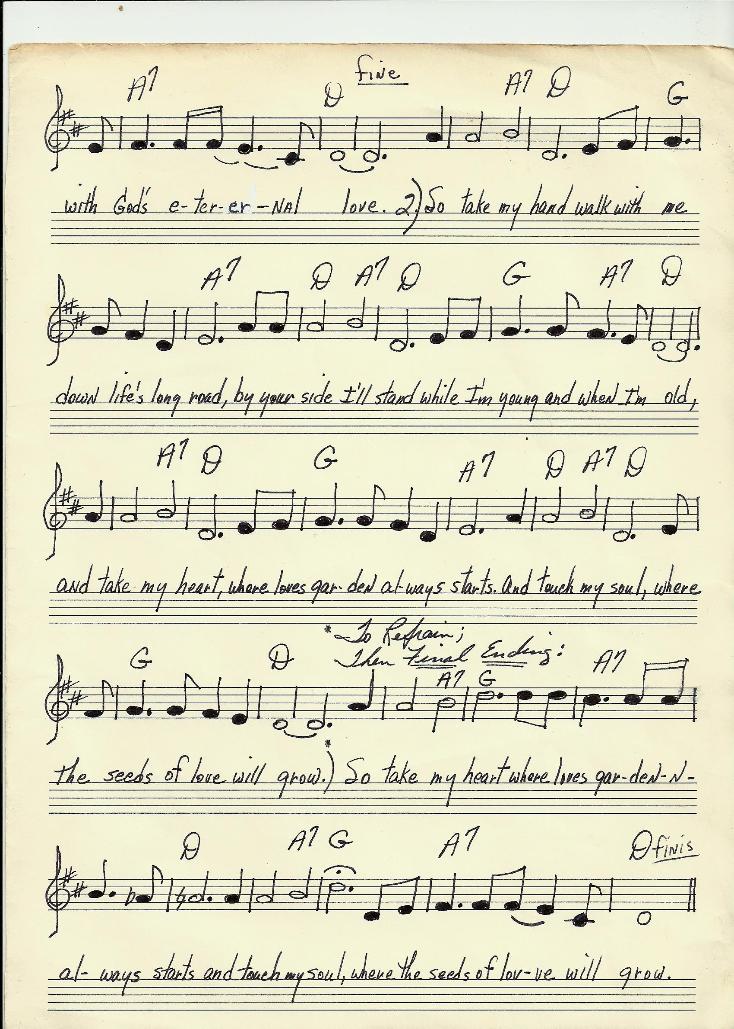 fine
A7 D A7 D G
with God's e-ter-er-NAl love. 2.) So take my hand walk with me
A7 D A7 D G A7 D
down life's long road, by your side I'll stand while I'm young and when I'm old,
A7 D G A7 D A7 D
and take my heart, where loves gar-den al-ways starts. And touch my soul, where
* To Refrain;
Then Final Ending:
G D A7 G A7
the seeds of love will grow.) So take my heart where loves gar-deN-N-
*
D A7 G A7 D finis
al-ways starts and touch my soul, where the seeds of lov-ve will grow.